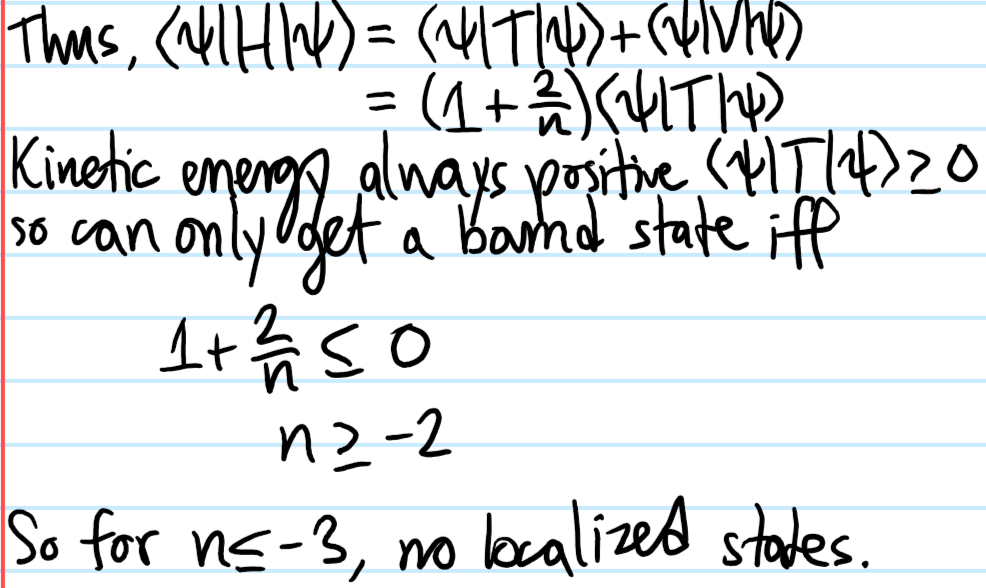 Thus, ⟨ψ|H|ψ⟩ = ⟨ψ|T|ψ⟩ + ⟨ψ|V|ψ⟩
= (1 + 2/n)⟨ψ|T|ψ⟩
Kinetic energy always positive ⟨ψ|T|ψ⟩ ≥ 0
so can only get a bound state iff
1 + 2/n ≤ 0
n ≥ -2
So for n ≤ -3, no localized states.